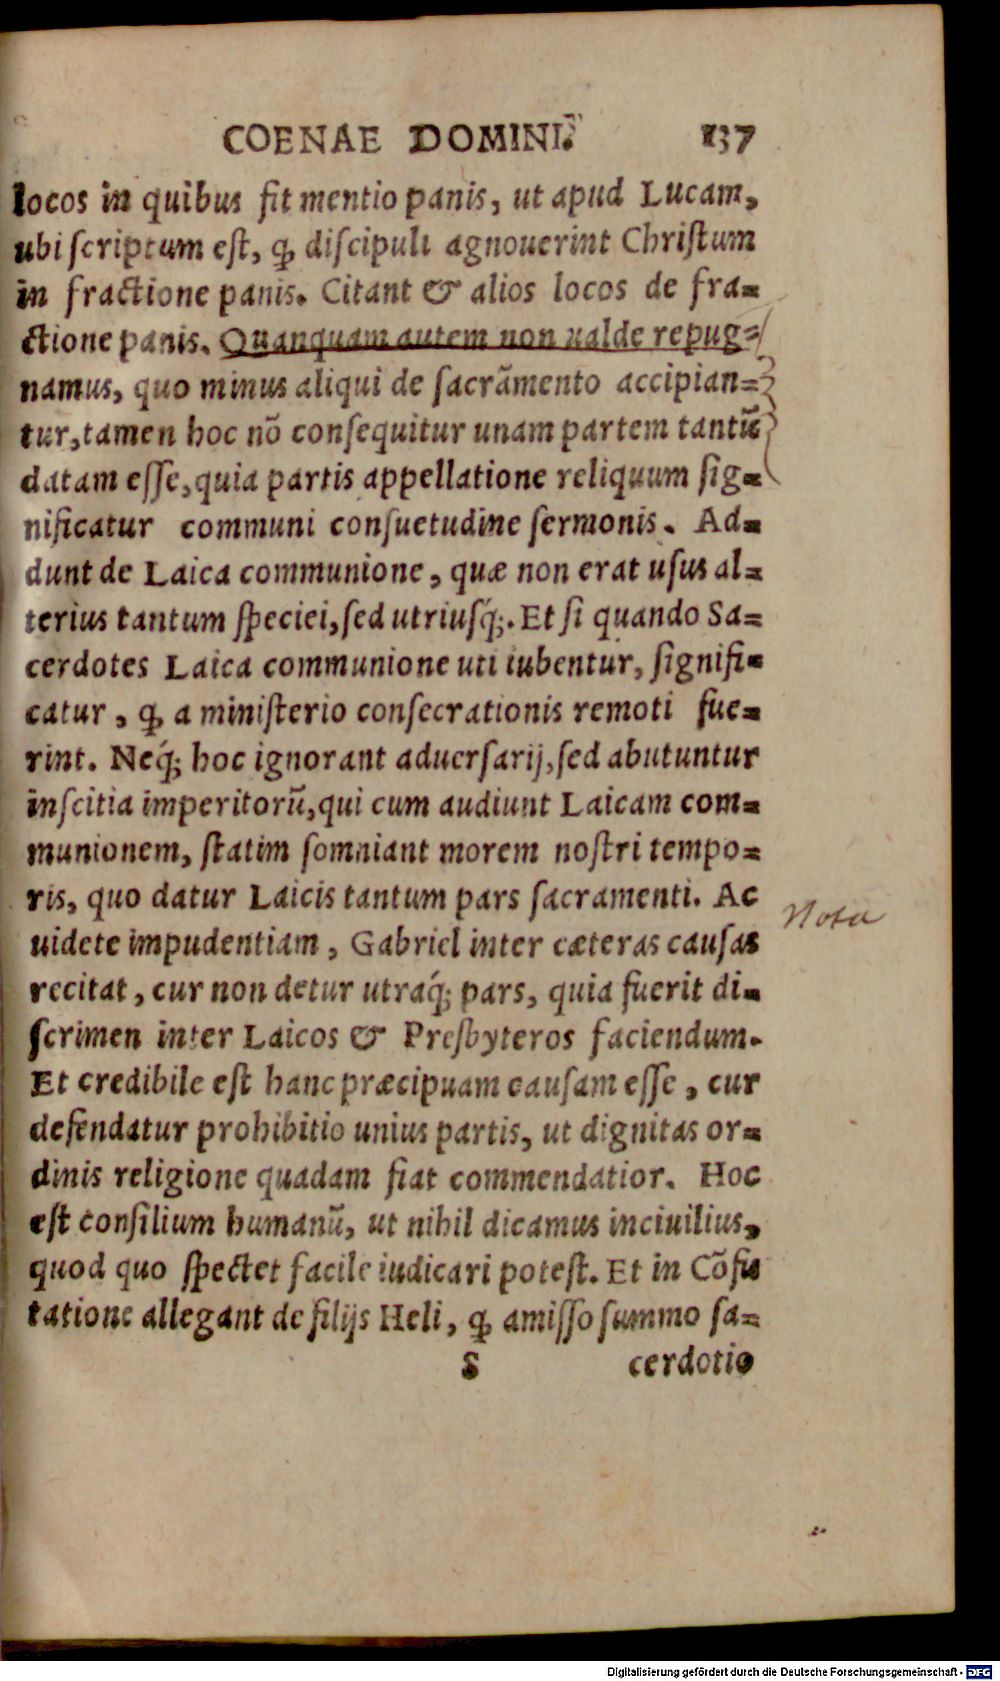 COENAE DOMINI. 137
locos in quibus fit mentio panis, ut apud Lucam,
ubi scriptum est, ꝙ discipuli agnouerint Christum
in fractione panis. Citant & alios locos de fra=
ctione panis. Quanquam autem non ualde repug=
namus, quo minus aliqui de sacrāmento accipian=
tur, tamen hoc nō consequitur unam partem tantū
datam esse, quia partis appellatione reliquum sig=
nificatur communi consuetudine sermonis. Ad=
dunt de Laica communione, quæ non erat usus al=
terius tantum speciei, sed utriusq́;. Et si quando Sa=
cerdotes Laica communione uti iubentur, signifi=
catur, ꝙ a ministerio consecrationis remoti fue=
rint. Neq́; hoc ignorant aduersarij, sed abutuntur
inscitia imperitorū, qui cum audiunt Laicam com=
munionem, statim somniant morem nostri tempo=
ris, quo datur Laicis tantum pars sacramenti. Ac
Nota
uidete impudentiam, Gabriel inter cæteras causas
recitat, cur non detur utraq́; pars, quia fuerit di=
scrimen inter Laicos & Presbyteros faciendum.
Et credibile est hanc præcipuam causam esse, cur
defendatur prohibitio unius partis, ut dignitas or=
dinis religione quadam fiat commendatior. Hoc
est consilium humanū, ut nihil dicamus inciuilius,
quod quo spectet facile iudicari potest. Et in Cōfu
tatione allegant de filijs Heli, ꝙ amisso summo sa=
S cerdotio
Digitalisierung gefördert durch die Deutsche Forschungsgemeinschaft - DFG